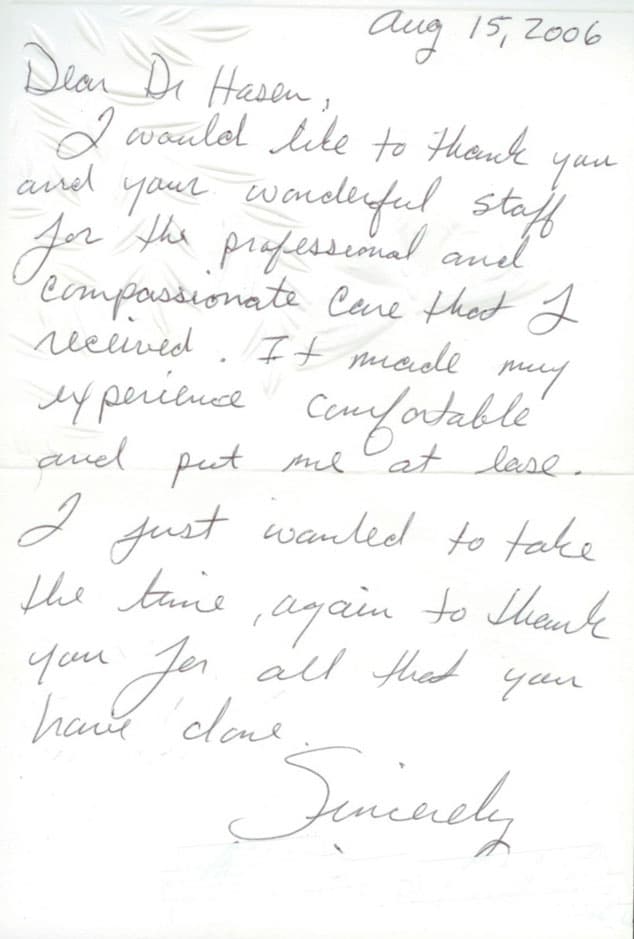 Aug 15, 2006
Dear Dr Hasen,
I would like to thank you
and your wonderful staff
for the professional and
compassionate care that I
received. It made my
experience comfortable
and put me at ease.
I just wanted to take
the time, again to thank
you for all that you
have done.
Sincerely